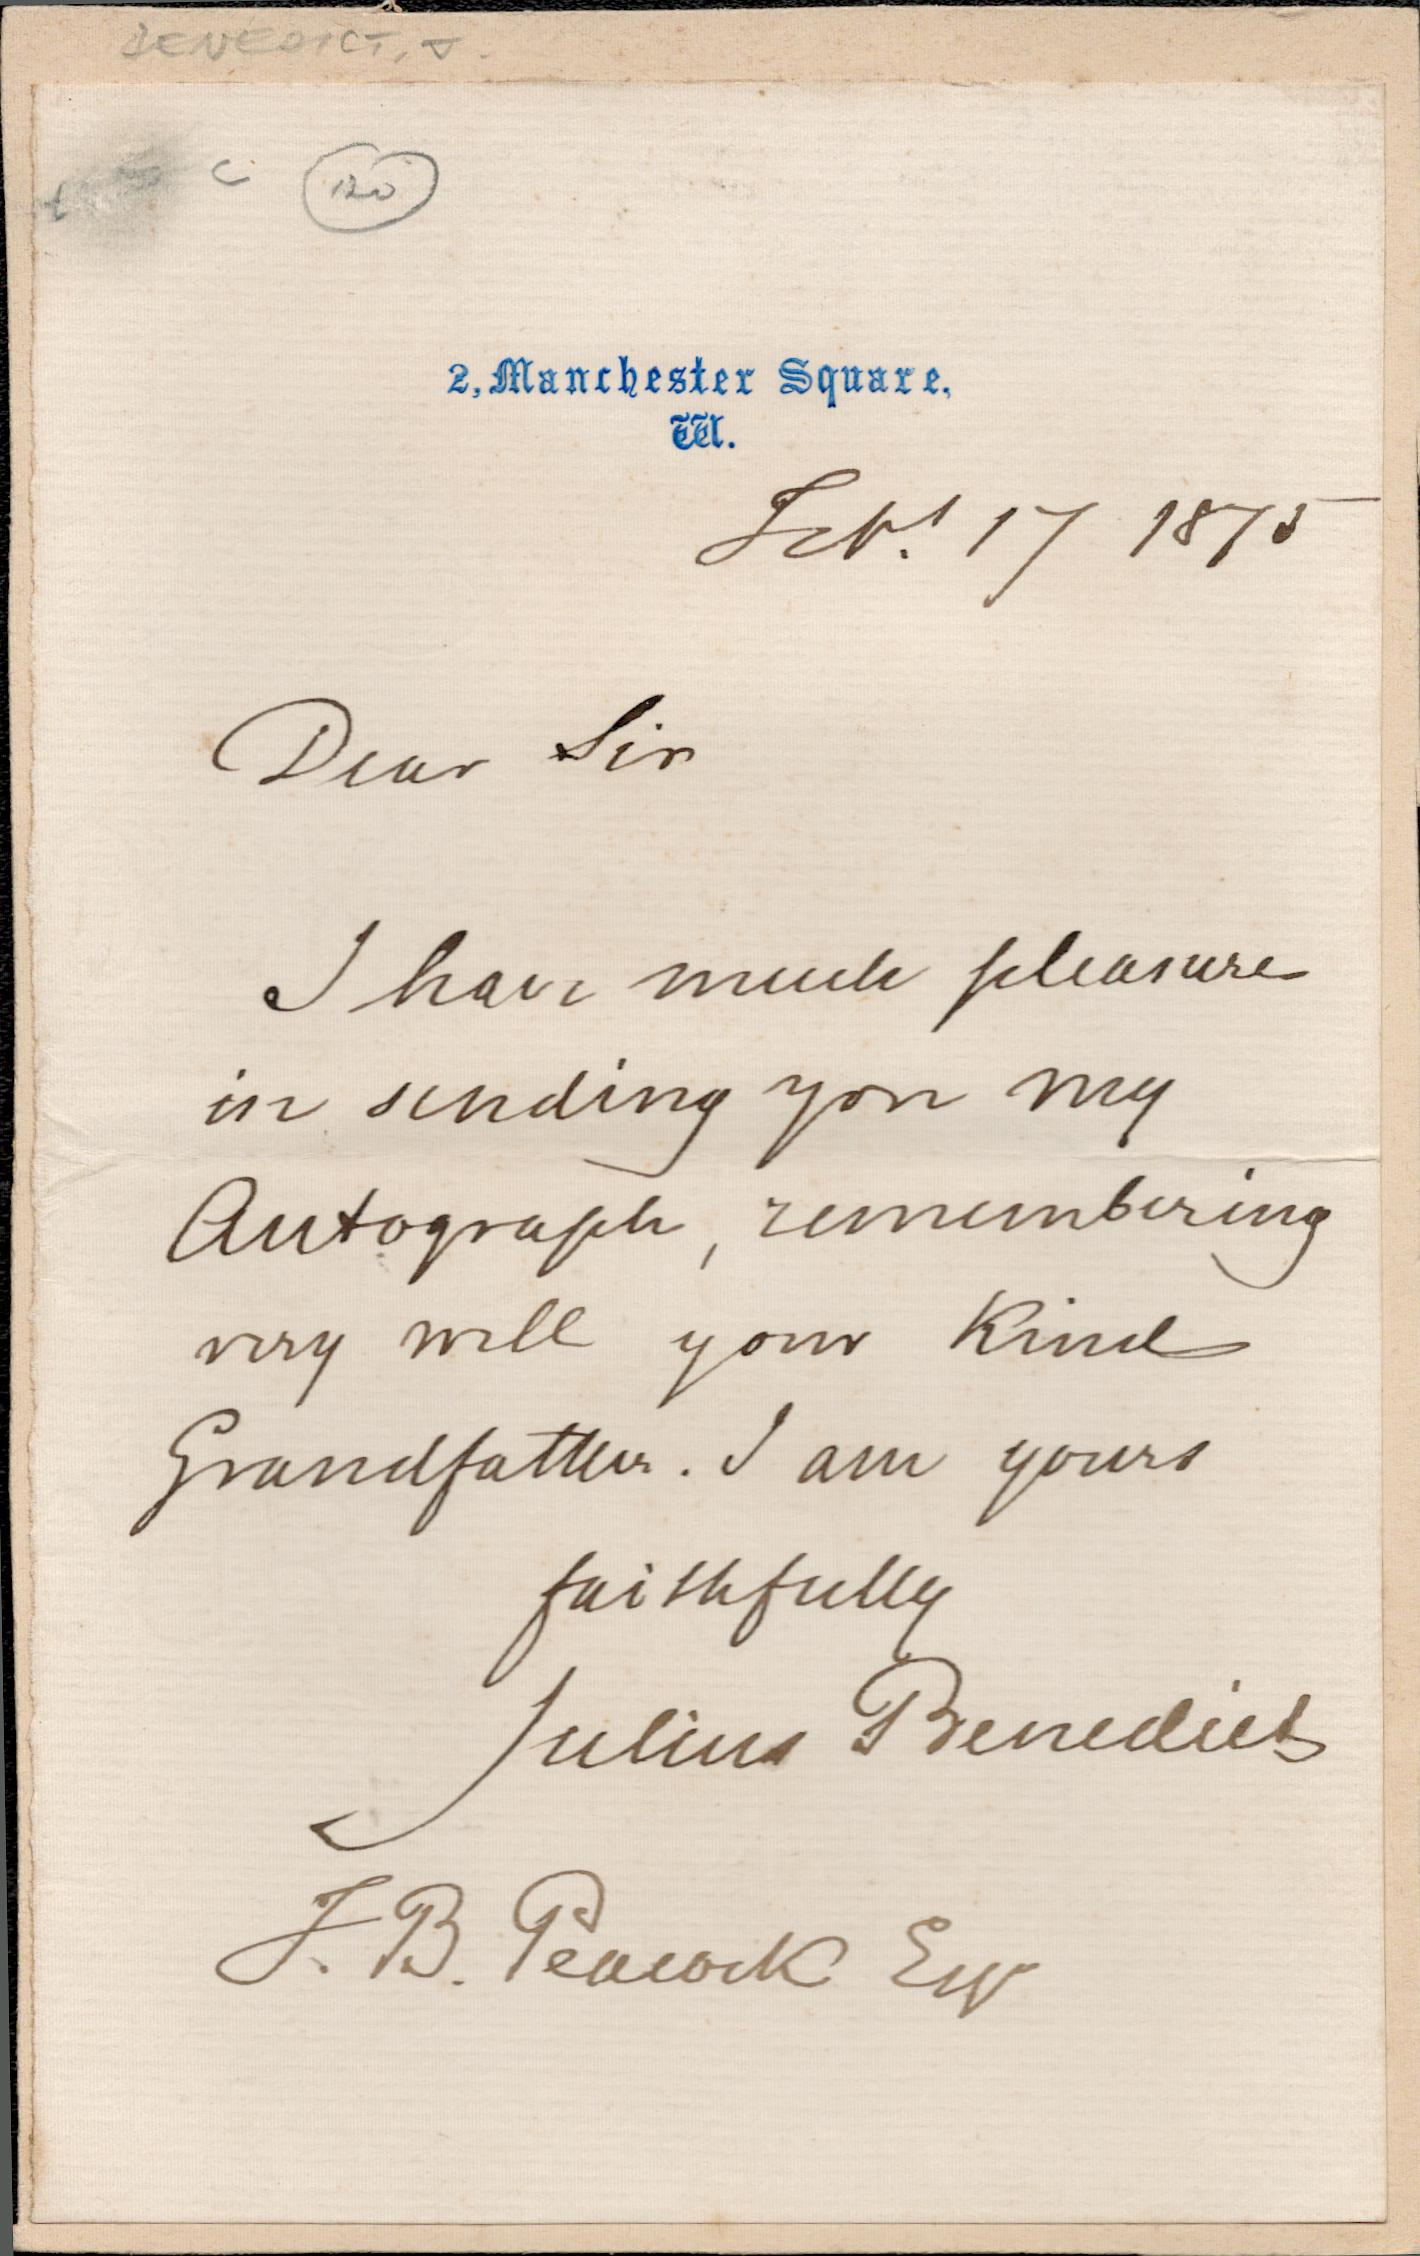 BENEDICT, J.
120
2, Manchester Square,
W.
Feb. 17 1875
Dear Sir
I have much pleasure
in sending you my
Autograph, remembering
very well your Kind
Grandfather. I am yours
faithfully
Julius Benedict
F. B. Peacock Esq